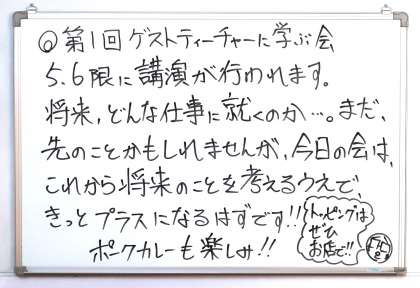 ◎第1回ゲストティーチャーに学ぶ会
5.6限に講演が行われます。
将来,どんな仕事に就くのか…。まだ、
先のことかもしれませんが,今日の会は、
これから将来のことを考えるうえで、
きっとプラスになるはずです!!
ポークカレーも楽しみ!!
トッピングは
ぜひ
お店で!!